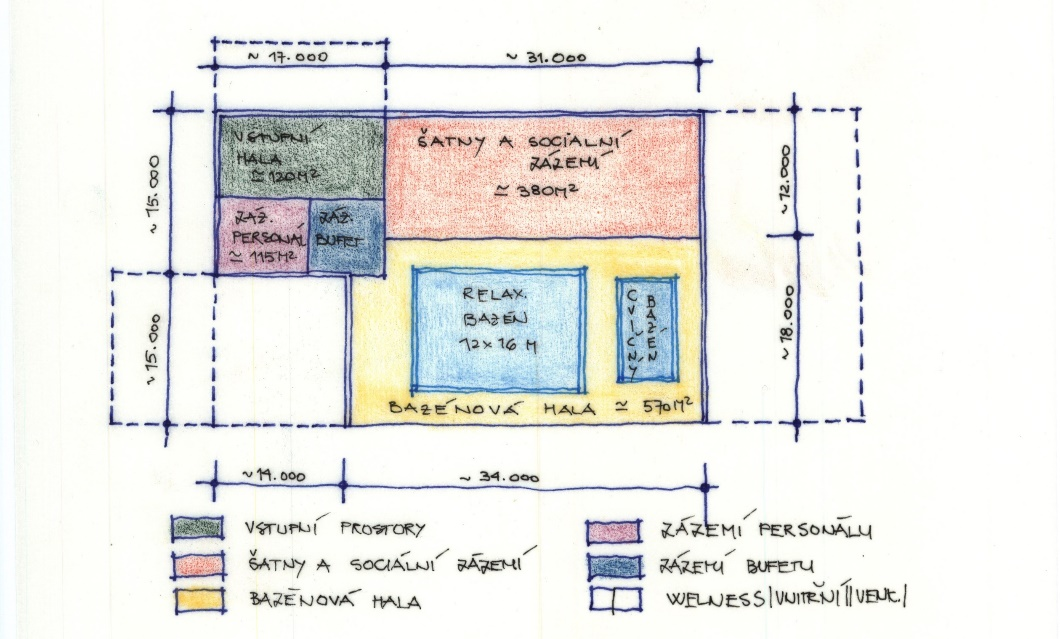 ~ 17.000
~ 31.000
VSTUPNÍ
HALA
≃ 120M²
ŠATNY A SOCIALNÍ
ZÁZEMÍ
≃ 380M²
~ 15.000
~ 12.000
ZÁZ.
PERSONÁL
≃ 115M²
ZÁZ.
BUFET
RELAX.
BAZÉN
12×16 M
CVIČNÝ
BAZÉN
~ 15.000
~ 18.000
BAZÉNOVÁ HALA ≃ 570M²
~ 14.000
~ 34.000
VSTUPNÍ PROSTORY
ŠATNY A SOCIÁLNÍ ZÁZEMÍ
BAZÉNOVÁ HALA
ZÁZEMÍ PERSONÁLU
ZÁZEMÍ BUFETU
WELNESS |VNITŘNÍ||VENK.|